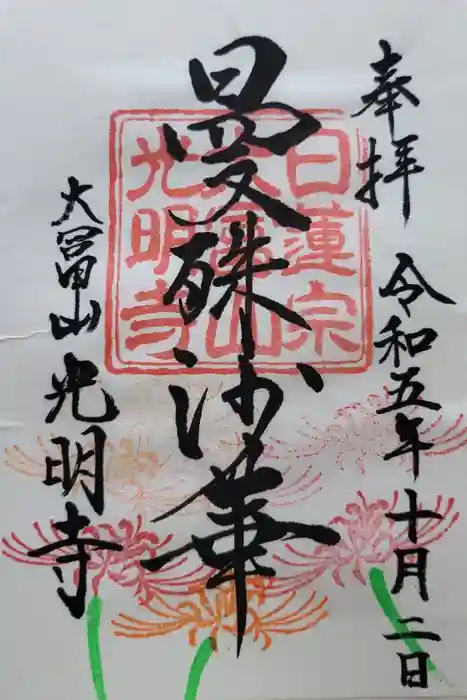 奉拝
令和五年十月二日
曼殊沙華
日蓮宗
大富山
光明寺
大富山光明寺